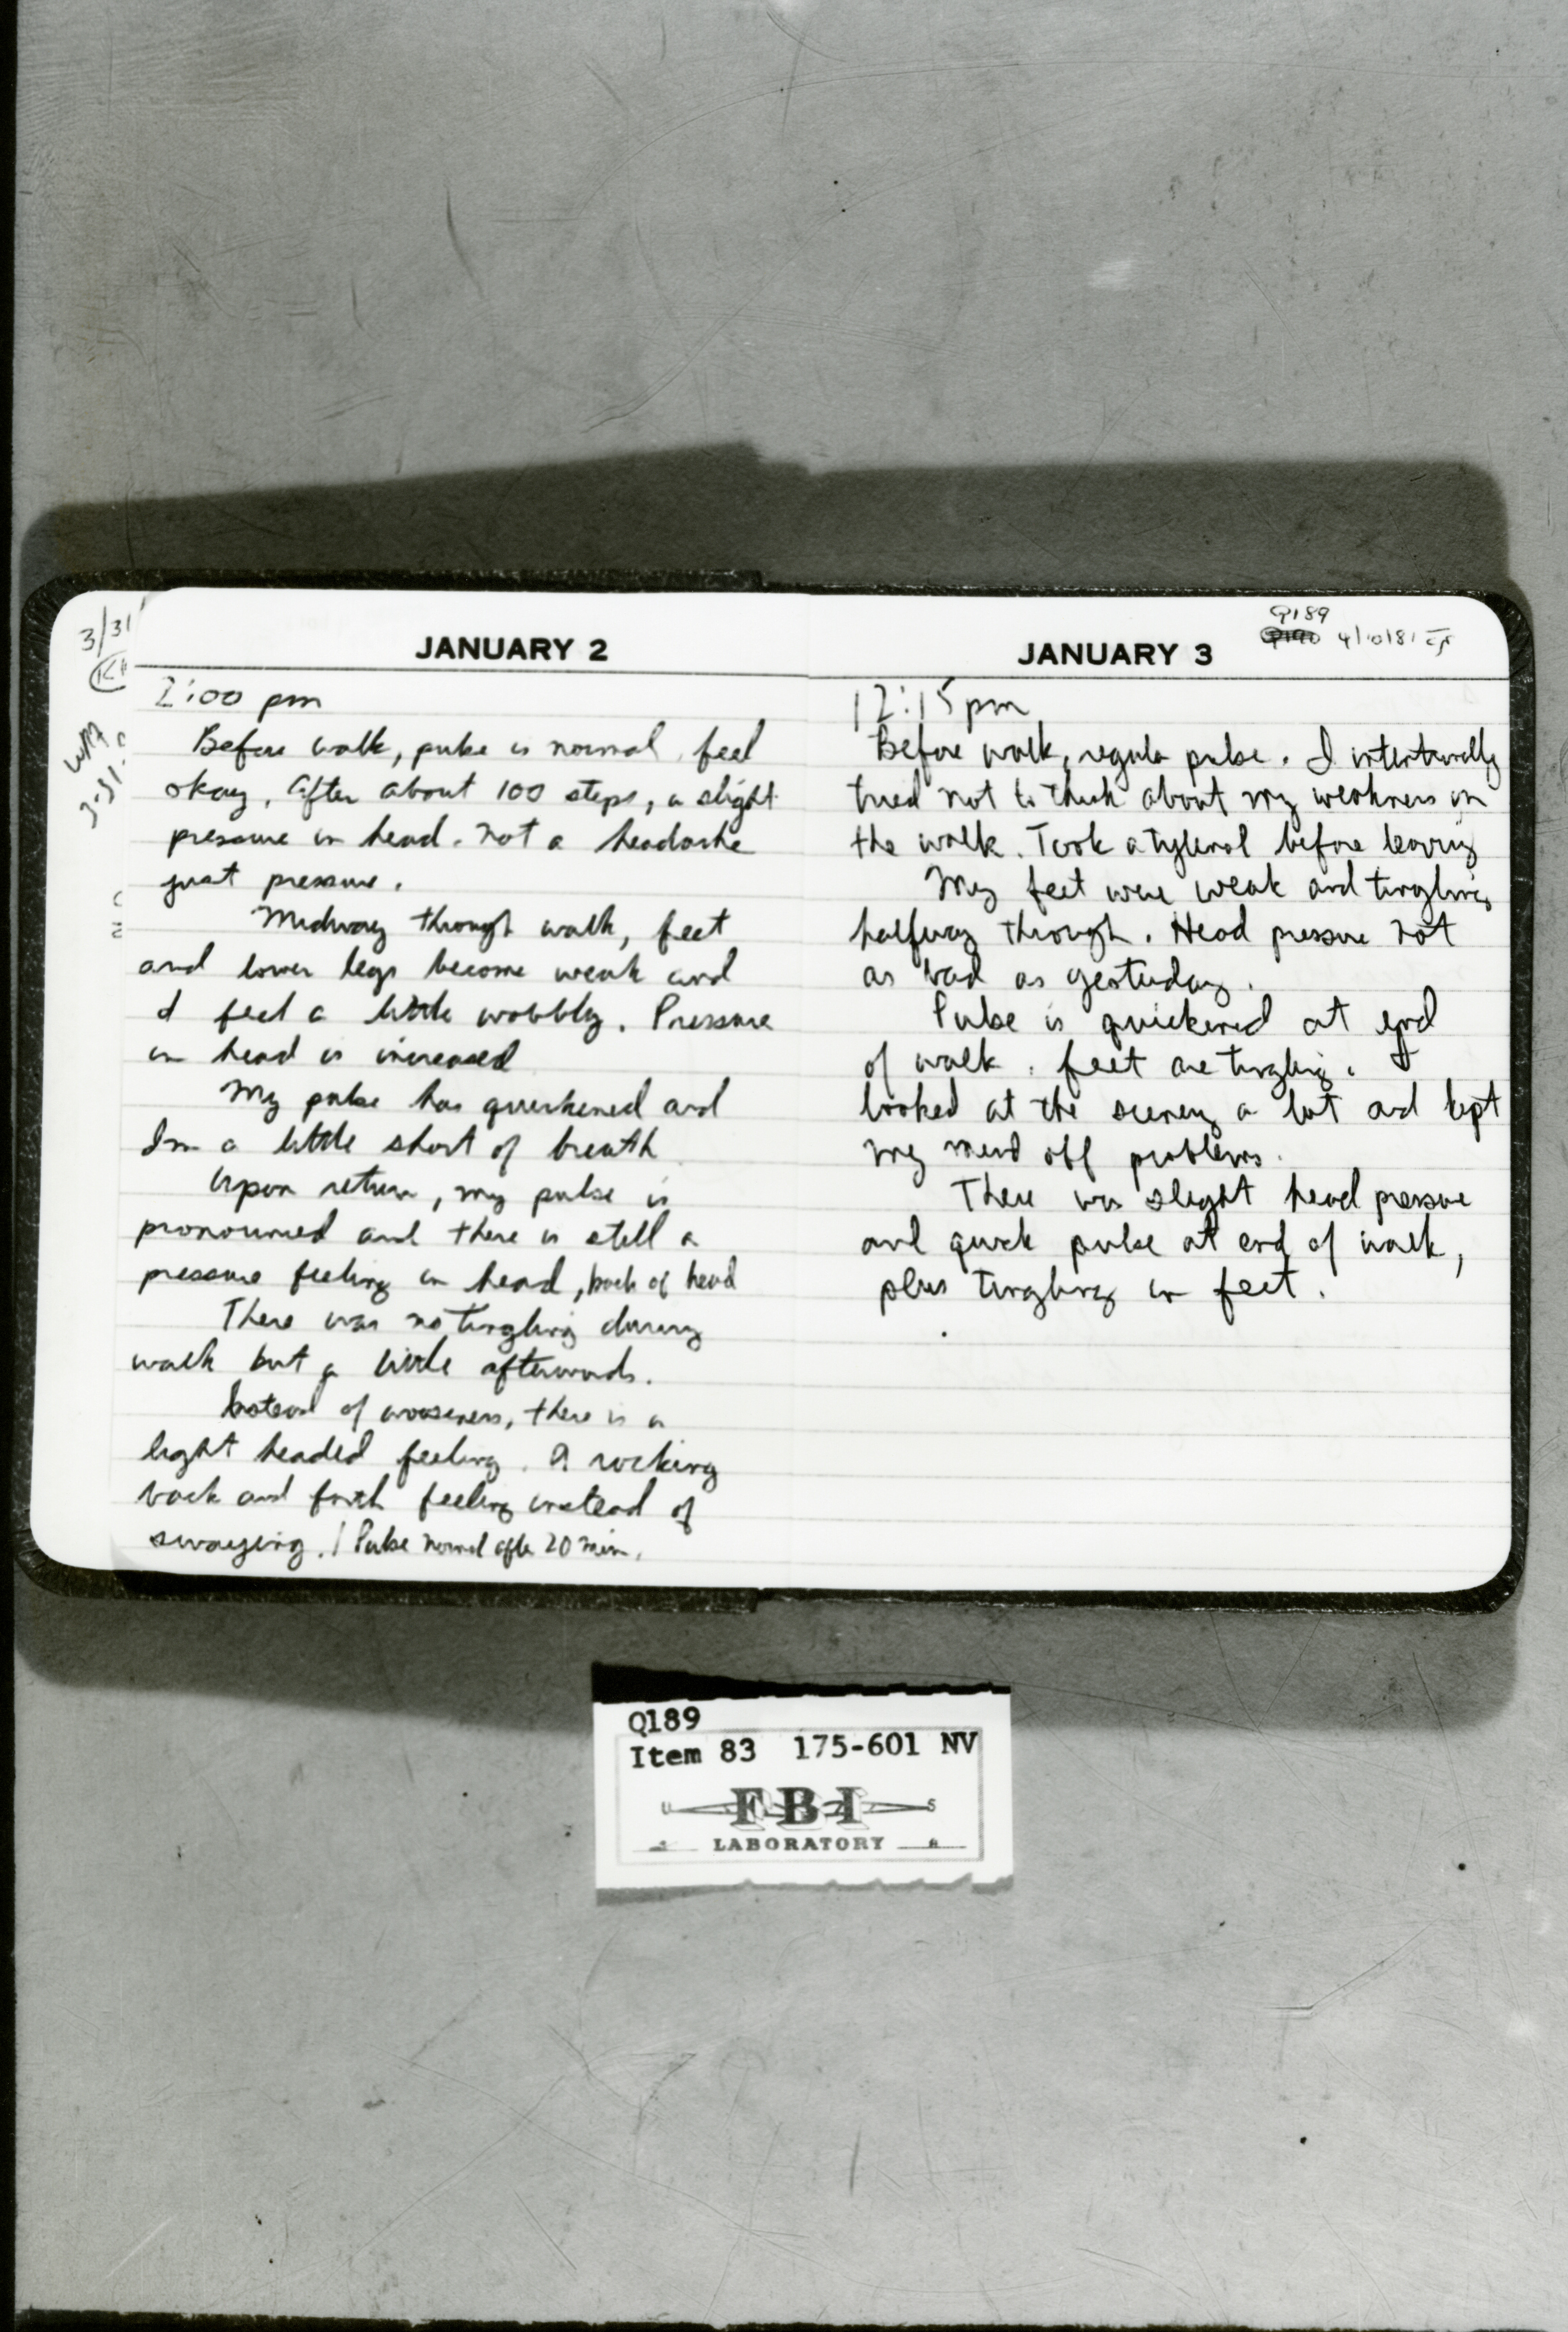 3/31
JANUARY 2
2:00 pm
Before walk, pulse is normal, feel
okay, After about 100 steps, a slight
pressure in head. not a headache
just pressure.
Midway through walk, feet
and lower legs become weak and
I feel a little wobbly. Pressure
in head is increased
My pulse has quickened and
Im a little short of breath
Upon return, my pulse is
pronounced and there is still a
pressure feeling in head, back of head
There was no tingling during
walk but a little afterwards.
Instead of wooseness, there is a
light headed feeling. A rocking
back and forth feeling instead of
swaying. / Pulse normal after 20 min.
Q189
4/10/81
JANUARY 3
12:15 pm
Before walk, regular pulse. I intentionally
tried not to think about my weakness on
the walk. Took a tylenol before leaving
My feet were weak and tingling
halfway through. Head pressure not
as bad as yesterday.
Pulse is quickened at end
of walk. feet are tingling. I
looked at the scenery a lot and kept
my mind off problems.
There was slight head pressure
and quick pulse at end of walk,
plus tingling in feet.
Q189
Item 83 175-601 NV
U FBI S
LABORATORY